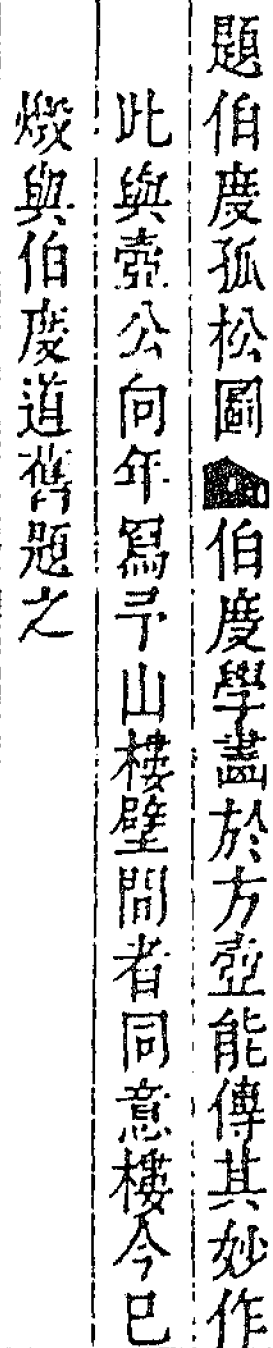 題伯度孤松圖 伯度學畵於方壺能傳其妙作
此與壺公向年寫予山樓壁間者同意樓今已
燬與伯度道舊題之